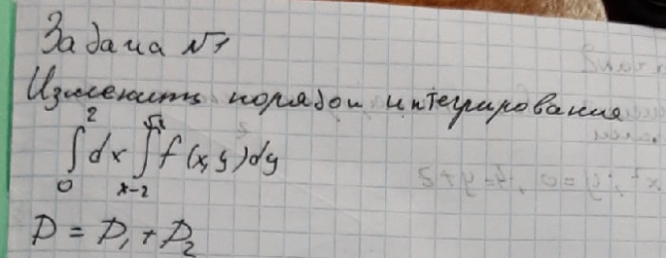 Задача №1
Изменить порядок интегрирования
∫₀² dx ∫ₓ₋₂^√x f(x,y)dy
D = D₁ + D₂